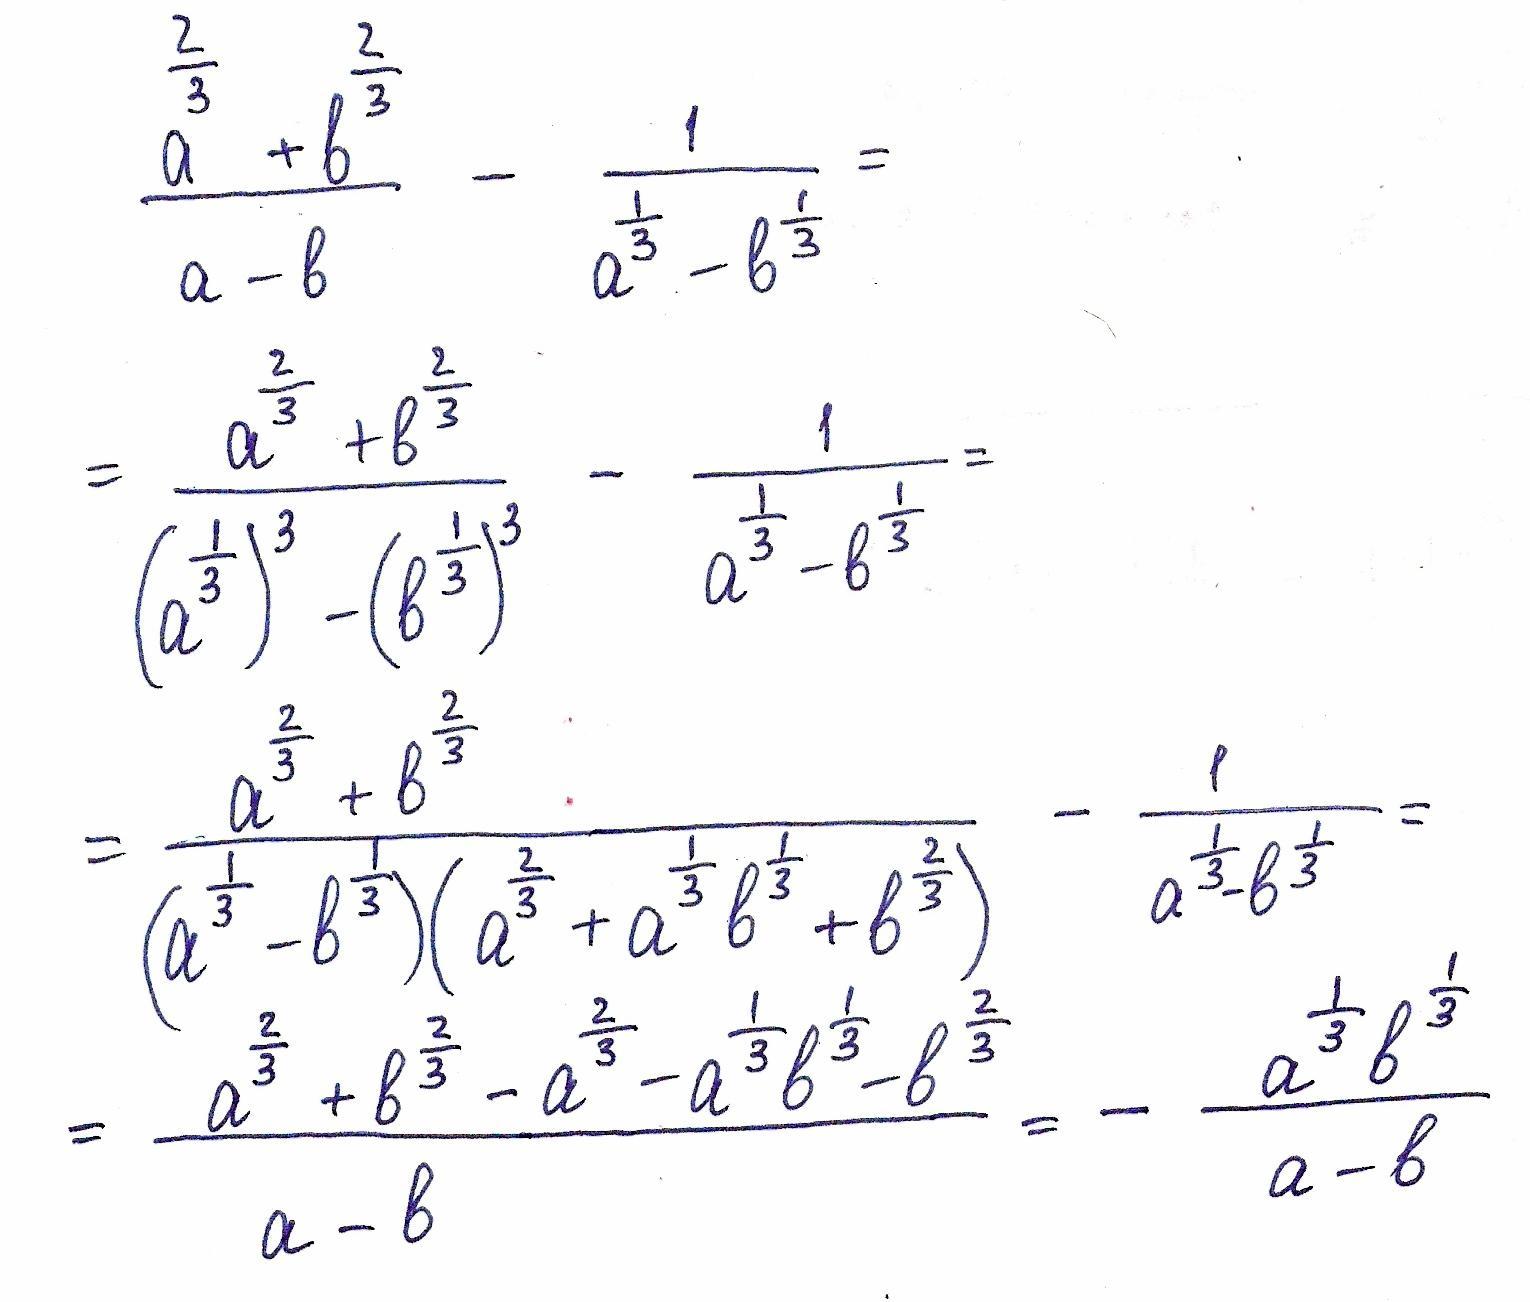 \frac{a^{\frac{2}{3}} + b^{\frac{2}{3}}}{a - b} - \frac{1}{a^{\frac{1}{3}} - b^{\frac{1}{3}}} =
= \frac{a^{\frac{2}{3}} + b^{\frac{2}{3}}}{\left(a^{\frac{1}{3}}\right)^3 - \left(b^{\frac{1}{3}}\right)^3} - \frac{1}{a^{\frac{1}{3}} - b^{\frac{1}{3}}} =
= \frac{a^{\frac{2}{3}} + b^{\frac{2}{3}}}{\left(a^{\frac{1}{3}} - b^{\frac{1}{3}}\right)\left(a^{\frac{2}{3}} + a^{\frac{1}{3}} b^{\frac{1}{3}} + b^{\frac{2}{3}}\right)} - \frac{1}{a^{\frac{1}{3}} - b^{\frac{1}{3}}} =
= \frac{a^{\frac{2}{3}} + b^{\frac{2}{3}} - a^{\frac{2}{3}} - a^{\frac{1}{3}} b^{\frac{1}{3}} - b^{\frac{2}{3}}}{a - b} = - \frac{a^{\frac{1}{3}} b^{\frac{1}{3}}}{a - b}